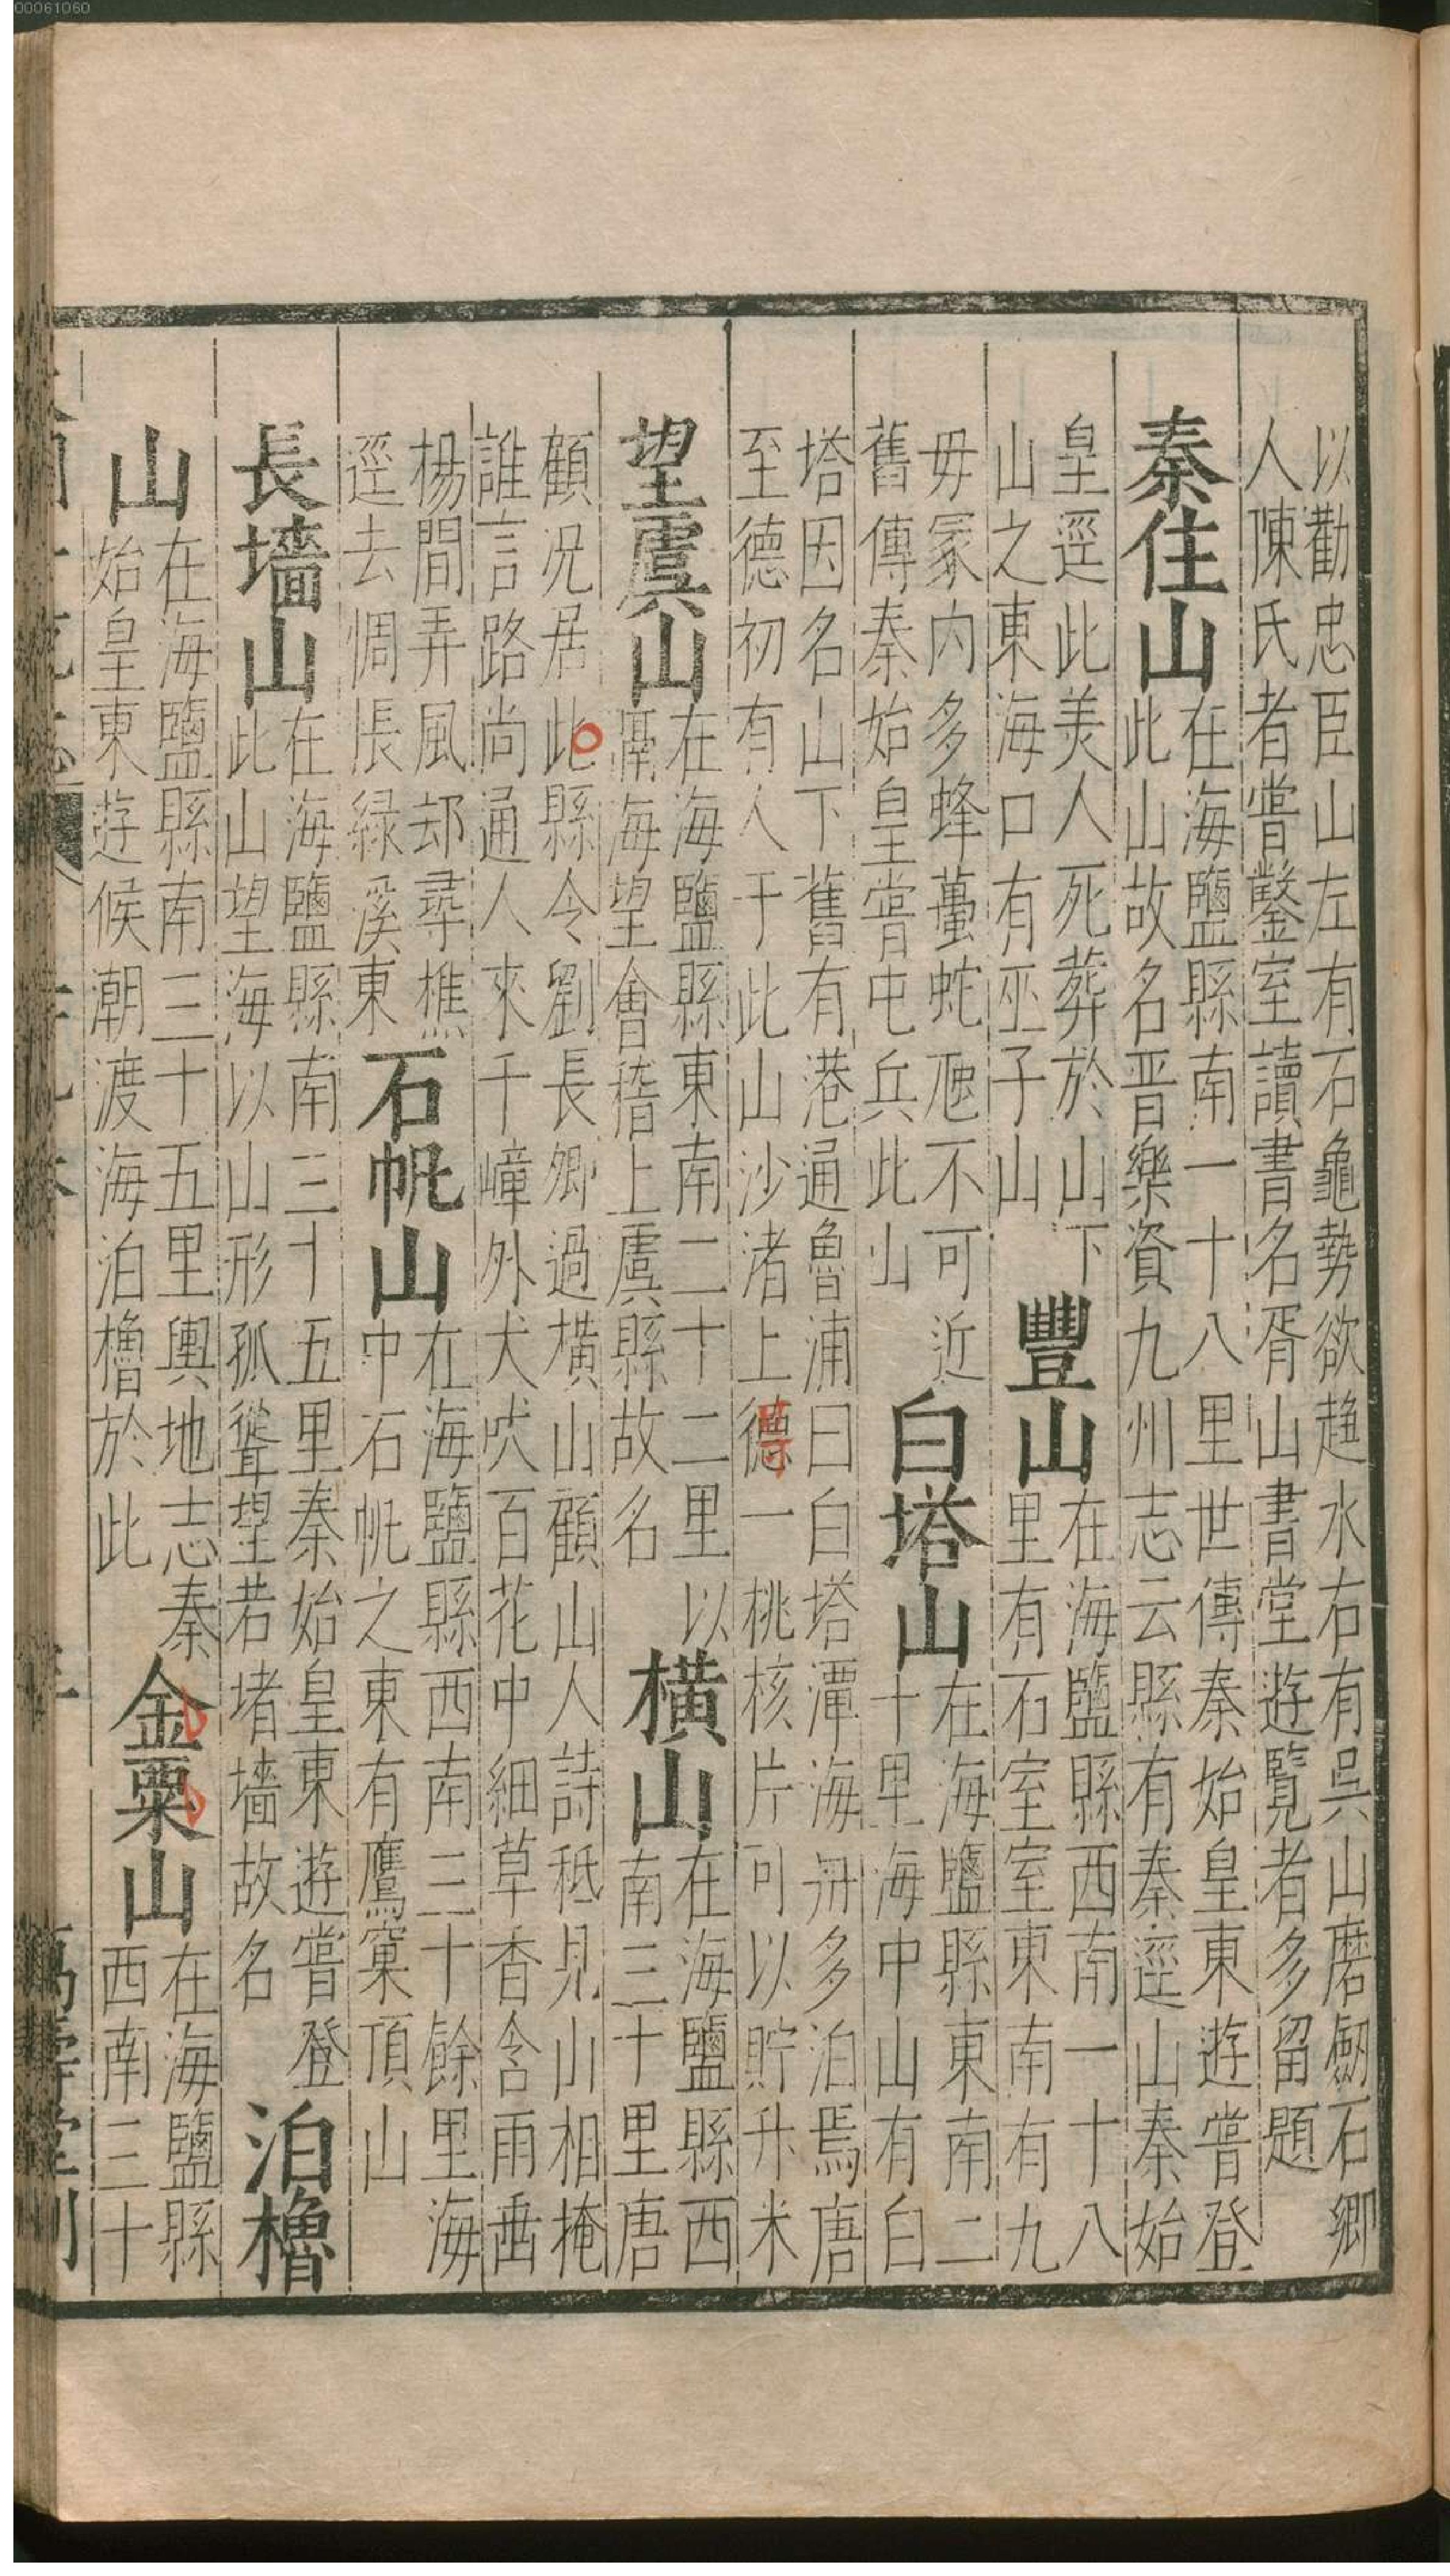 00061060
以勸忠臣山左有石龜勢欲趋水右有吳山磨劒石鄉
人陳氏者嘗鑿室讀書名胥山書堂遊覽者多留題
秦住山
在海鹽縣南一十八里世傳秦始皇東遊嘗登
此山故名晋樂資九州志云縣有秦逕山秦始
皇逕此美人死葬於山下
山之東海口有巫子山
豐山
在海鹽縣西南一十八
里有石室室東南有九
毋冢内多蜂蠆蛇虺不可近
舊傳秦始皇嘗屯兵此山
白塔山
在海鹽縣東南二
十里海中山有白
塔因名山下舊有港通魯浦曰白塔潭海舟多泊焉唐
至德初有人于此山沙渚上德一桃核片可以貯升米
望虞山
在海鹽縣東南二十二里以
隔海望會稽上虞縣故名
横山
在海鹽縣西
南三十里唐
顧况居此縣令劉長卿過横山顧山人詩秪見山相掩
誰言路尚通人來千嶂外犬吠百花中細草香含雨垂
楊間弄風却尋樵
逕去惆悵緑溪東
石帆山
在海鹽縣西南三十餘里海
中石帆之東有鷹窠頂山
長墻山
在海鹽縣南三十五里秦始皇東遊嘗登
此山望海以山形孤聳望若堵墻故名
泊櫓
山
在海鹽縣南三十五里輿地志秦
始皇東遊候潮渡海泊櫓於此
金粟山
在海鹽縣
西南三十